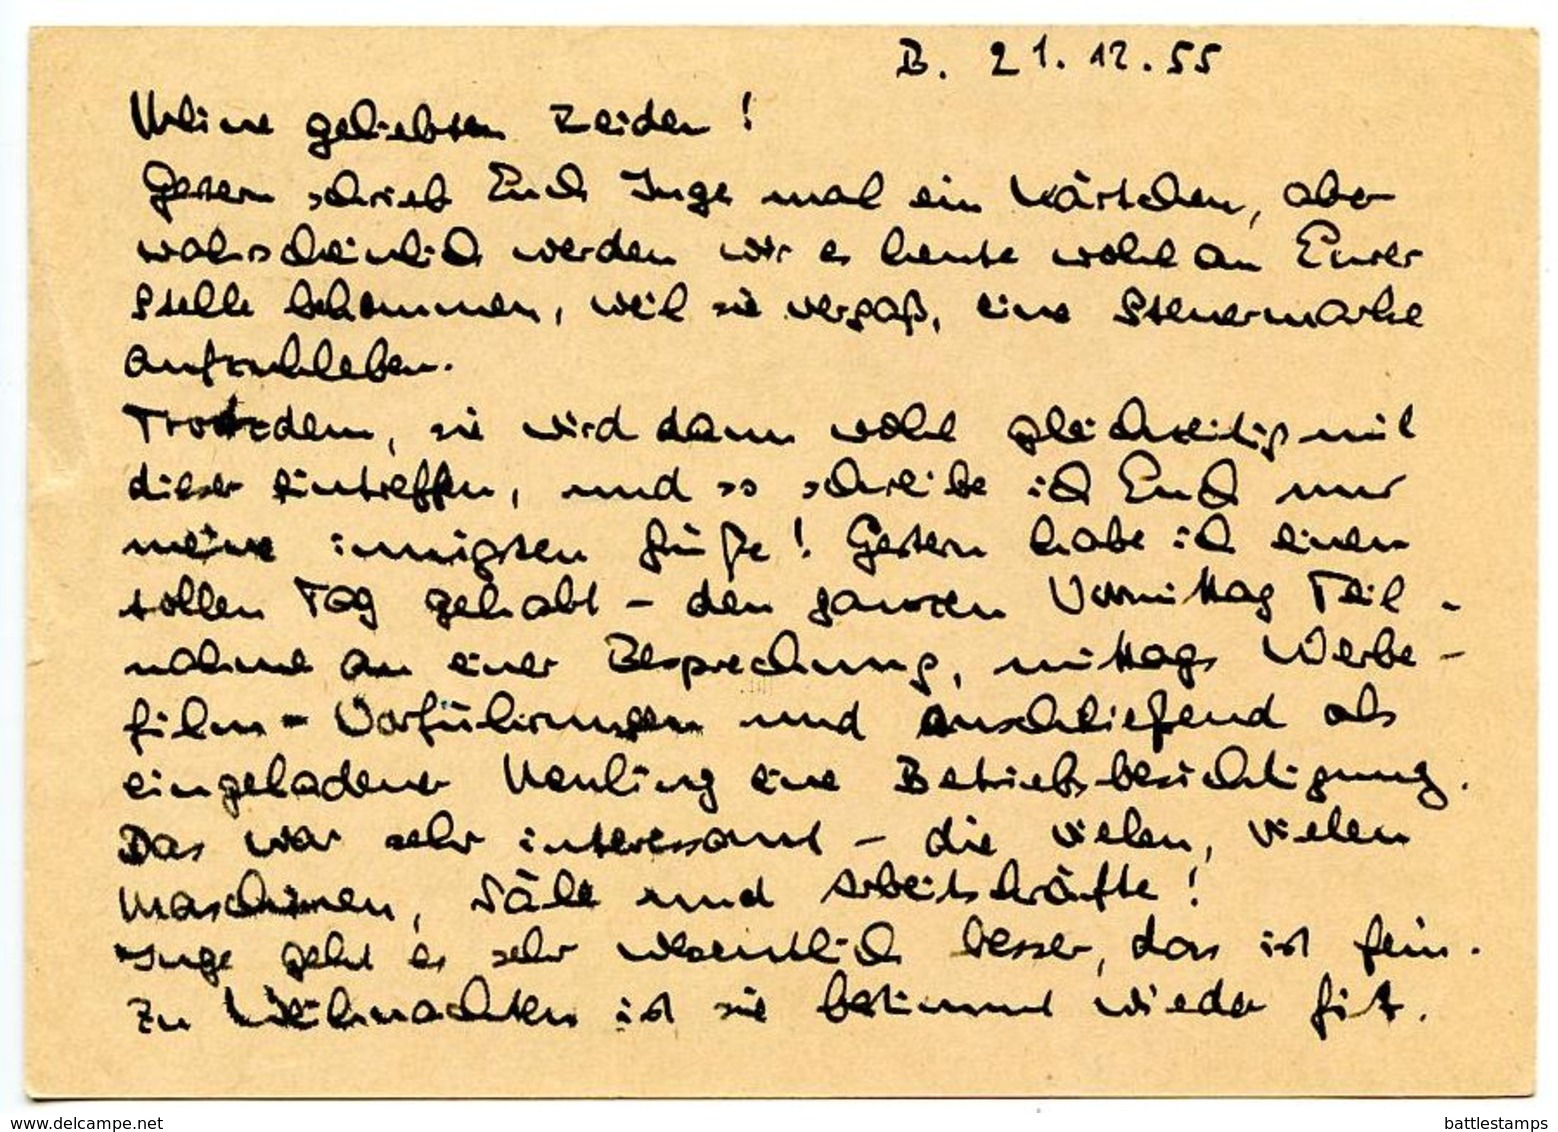 B. 21.12.55
Meine geliebten Beiden!
Gestern schrieb Euch Inge mal ein Kärtchen, aber
wahrscheinlich werden wir es heute wohl an Eurer
Stelle bekommen, weil sie vergaß, eine Steuermarke
aufzukleben.
Trotzdem, sie wird dann wohl gleichzeitig mit
dieser eintreffen, und so schreibe ich Euch nur
meine innigsten Grüße! Gestern habe ich einen
tollen Tag gehabt – den ganzen Vormittag Teil-
nahme an einer Besprechung, mittags Werbe-
film-Vorführungen und anschließend als
eingeladener Neuling eine Betriebsbesichtigung.
Das war sehr interessant – die vielen, vielen
Maschinen, Säle und Arbeitskräfte!
Inge geht es sehr wesentlich besser, das ist fein.
Zu Weihnachten ist sie bestimmt wieder fit.
www.delcampe.net
battlestamps